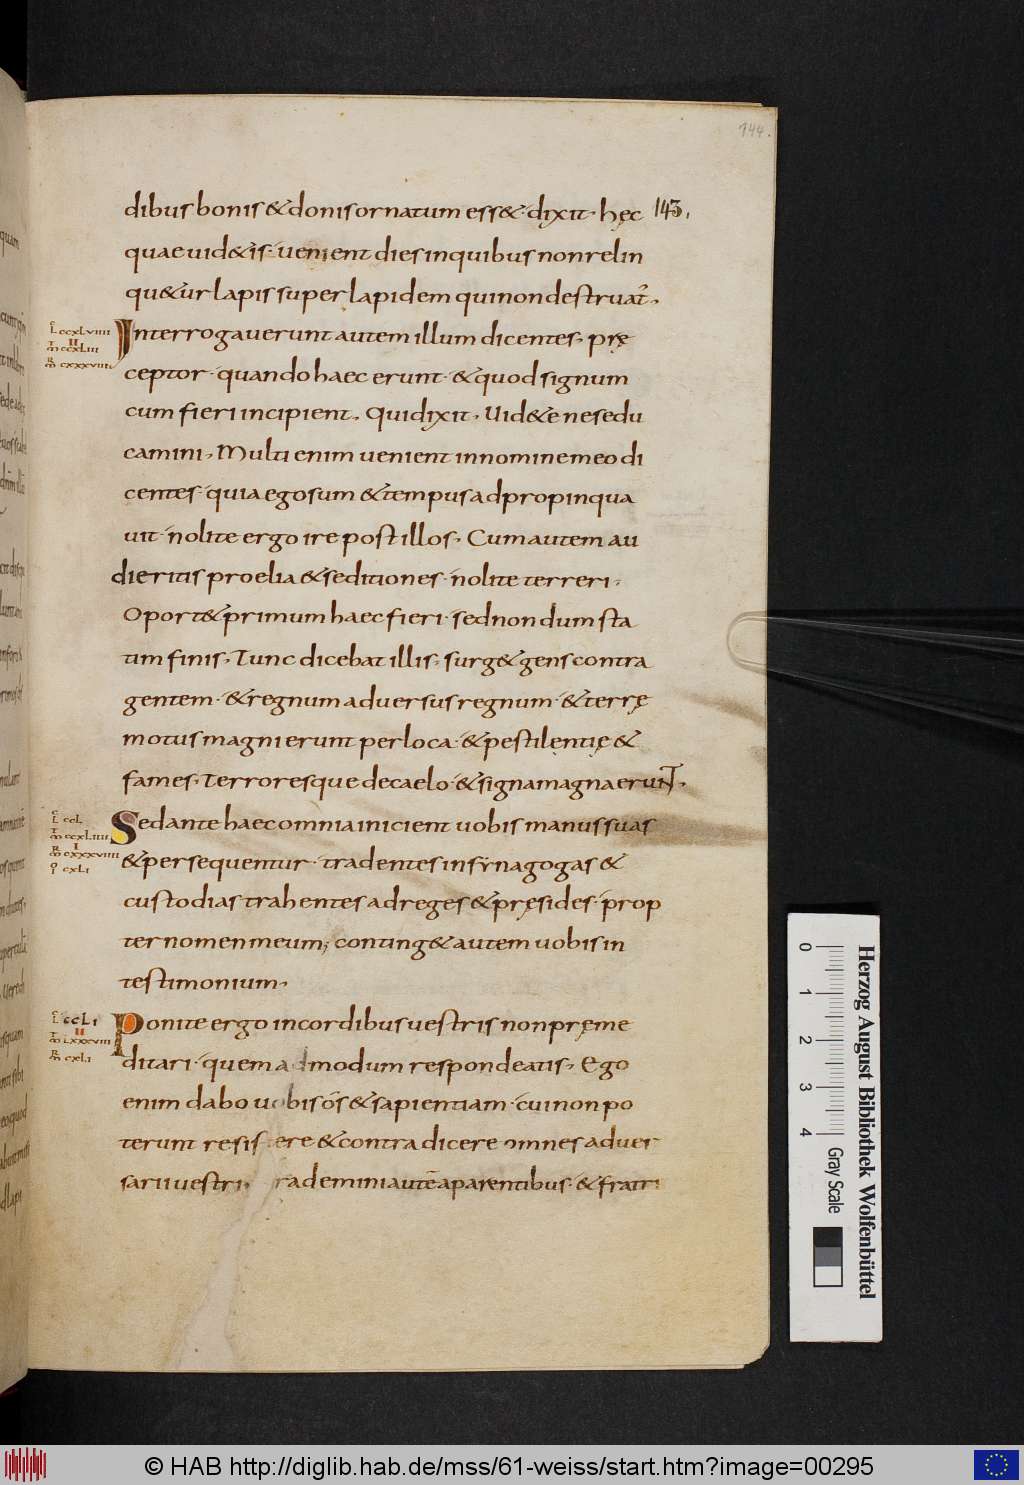 144.
dibus bonis & donis ornatum ess& · dixit · hęc 143,
quae uid&is · uenient dies in quibus non relin
qu&ur lapis super lapidem qui non destruat᷒.
Interrogauerunt autem illum dicentes. prę
ceptor · quando haec erunt · & quod signum
cum fieri incipient. Qui dixit. Uid&e ne sedu
camini. Multi enim uenient in nomine meo di
centes · quia ego sum & tempus adpropinqua
uit · nolite ergo ire post illos. Cum autem au
dieritis proelia & seditiones · nolite terreri.
Oport& primum haec fieri · sed non dum sta
tim finis. Tunc dicebat illis. surg& gens contra
gentem · & regnum aduersus regnum · & terrę
motus magni erunt per loca · & pestilentię &
fames. terroresque de caelo · & signa magna erunt.
Sed ante haec omnia inicient uobis manus suas
& persequentur · tradentes in synagogas &
custodias trahentes ad reges & pręsides · prop
ter nomen meum; conting& autem uobis in
testimonium.
Ponite ergo in cordibus uestris non pręme
ditari · quem admodum respondeatis. Ego
enim dabo uobis ós & sapientiam · cui non po
terunt resistere & contradicere omnes aduer
sarii uestri. trademini autē a parentibus · & fratri
CCXLVIIII
II
CCXLIII
CXXXVIII
CCL
CCXLIIII
I
CXXXVIIII
CXLI
CCLI
II
LXXXVIII
CXLI
0 1 2 3 4 Gray Scale
Herzog August Bibliothek Wolfenbüttel
© HAB http://diglib.hab.de/mss/61-weiss/start.htm?image=00295